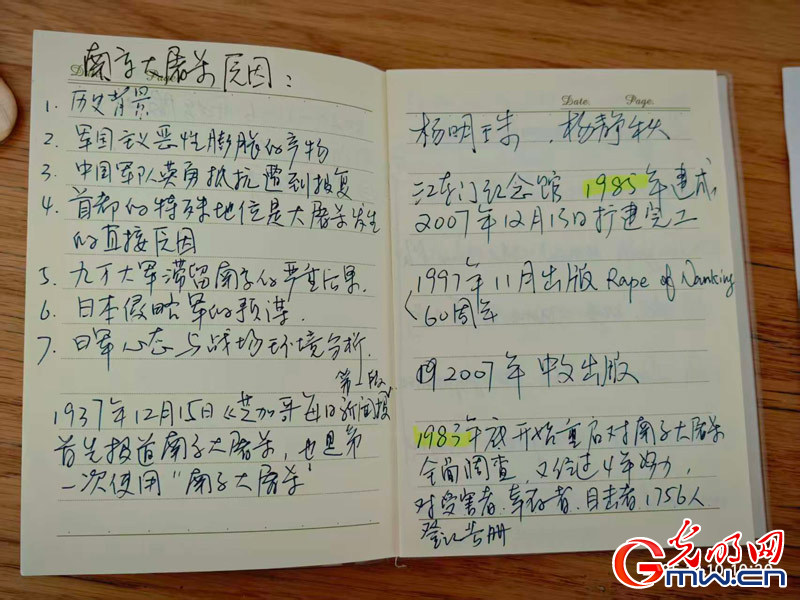 南京大屠杀原因：
1. 历史背景
2. 军国主义恶性膨胀的产物
3. 中国军队英勇抵抗遭到报复
4. 首都的特殊地位是大屠杀发生
的直接原因
5. 九万大军滞留南京的严重后果.
6. 日本侵略军的预谋.
7. 日军心态与战场环境分析.
第一版
1937年12月15日《芝加哥每日新闻报
首先报道南京大屠杀，也是第
一次使用"南京大屠杀"
Date. Page.
杨明珠 . 杨静秋
江东门纪念馆 1985年建成
2007年12月13日扩建完工
1997年11月出版 Rape of Nanking
60周年
2007年 中文出版
1983年底开始重启对南京大屠杀
全面调查，又经过4年努力，
对受害者、幸存者、目击者，1756人
登记造册
光明网
Gmw.cn